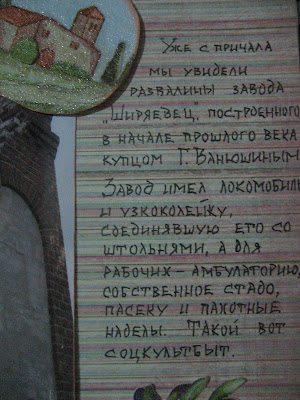 Уже с причала
мы увидели
развалины завода
„Ширяевец", построенного
в начале прошлого века
купцом Г. Ванюшиным.
Завод имел локомобиль
и узкоколейку,
соединявшую его со
штольнями, а для
рабочих – амбулаторию,
собственное стадо,
пасеку и пахотные
наделы. Такой вот
соцкультбыт.